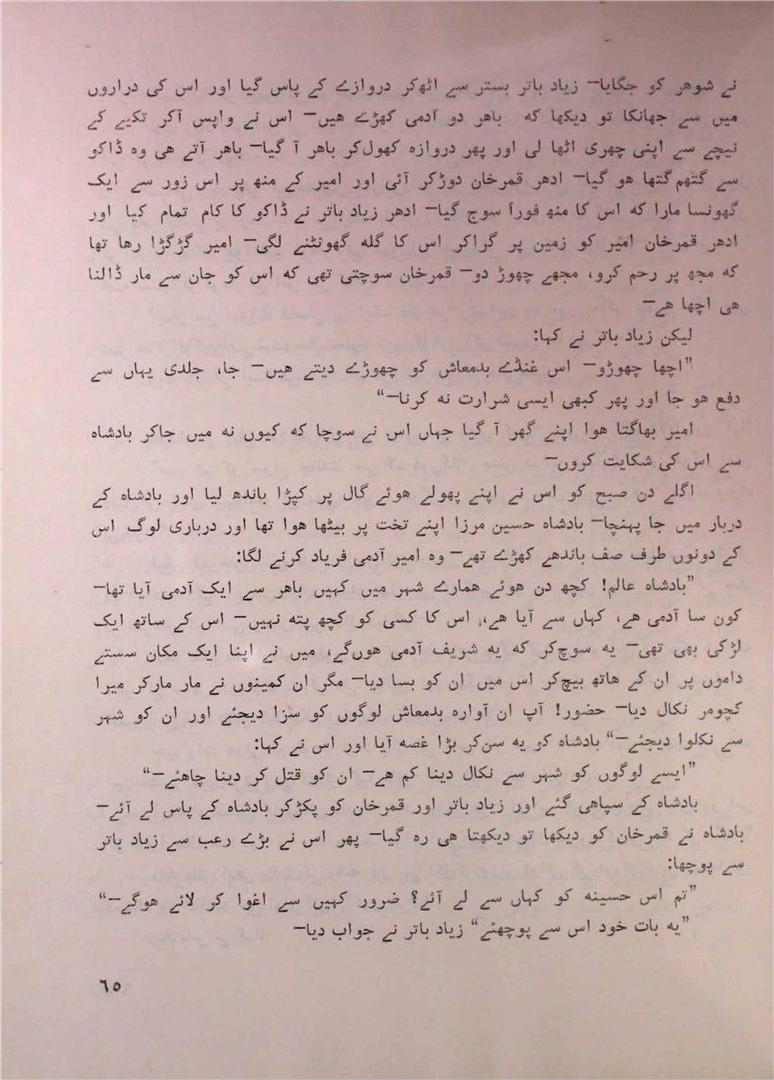 نے شوھر کو جگایا— زیاد باتر بستر سے اٹھ‌کر دروازے کے پاس گیا اور اس کی دراروں
میں سے جھانکا تو دیکھا کہ باھر دو آدمی کھڑے ھیں— اس نے واپس آکر تکیے کے
نیچے سے اپنی چھری اٹھا لی اور پھر دروازہ کھول‌کر باھر آ گیا— باھر آتے ھی وہ ڈاکو
سے گتھم گتھا ھو گیا— ادھر قمرخان دوڑ‌کر آئی اور امیر کے منھ پر اس زور سے ایک
گھونسا مارا کہ اس کا منھ فوراً سوج گیا— ادھر زیاد باتر نے ڈاکو کا کام تمام کیا اور
ادھر قمرخان امیر کو زمین پر گراکر اس کا گلہ گھونٹنے لگی— امیر گڑگڑا رھا تھا
کہ مجھ پر رحم کرو، مجھے چھوڑ دو— قمرخان سوچتی تھی کہ اس کو جان سے مار ڈالنا
ھی اچھا ھے—
لیکن زیاد باتر نے کہا:
”اچھا چھوڑو— اس غنڈے بدمعاش کو چھوڑے دیتے ھیں— جا، جلدی یہاں سے
دفع ھو جا اور پھر کبھی ایسی شرارت نہ کرنا—“
امیر بھاگتا ھوا اپنے گھر آ گیا جہاں اس نے سوچا کہ کیوں نہ میں جاکر بادشاہ
سے اس کی شکایت کروں—
اگلے دن صبح کو اس نے اپنے پھولے ھوئے گال پر کپڑا باندھ لیا اور بادشاہ کے
دربار میں جا پہنچا— بادشاہ حسین مرزا اپنے تخت پر بیٹھا ھوا تھا اور درباری لوگ اس
کے دونوں طرف صف باندھے کھڑے تھے— وہ امیر آدمی فریاد کرنے لگا:
”بادشاہ عالم! کچھ دن ھوئے ھمارے شہر میں کہیں باھر سے ایک آدمی آیا تھا—
کون سا آدمی ھے، کہاں سے آیا ھے، اس کا کسی کو کچھ پتہ نہیں— اس کے ساتھ ایک
لڑکی بھی تھی— یہ سوچ‌کر کہ یہ شریف آدمی ھوں‌گے، میں نے اپنا ایک مکان سستے
داموں پر ان کے ھاتھ بیچ‌کر اس میں ان کو بسا دیا— مگر ان کمینوں نے مار مارکر میرا
کچومر نکال دیا— حضور! آپ ان آوارہ بدمعاش لوگوں کو سزا دیجئے اور ان کو شہر
سے نکلوا دیجئے—“ بادشاہ کو یہ سن‌کر بڑا غصہ آیا اور اس نے کہا:
”ایسے لوگوں کو شہر سے نکال دینا کم ھے— ان کو قتل کر دینا چاھئے—“
بادشاہ کے سپاھی گئے اور زیاد باتر اور قمرخان کو پکڑ‌کر بادشاہ کے پاس لے آئے—
بادشاہ نے قمرخان کو دیکھا تو دیکھتا ھی رہ گیا— پھر اس نے بڑے رعب سے زیاد باتر
سے پوچھا:
”تم اس حسینہ کو کہاں سے لے آئے؟ ضرور کہیں سے اغوا کر لائے ھوگے—“
”یہ بات خود اس سے پوچھئے“ زیاد باتر نے جواب دیا—
٦٥